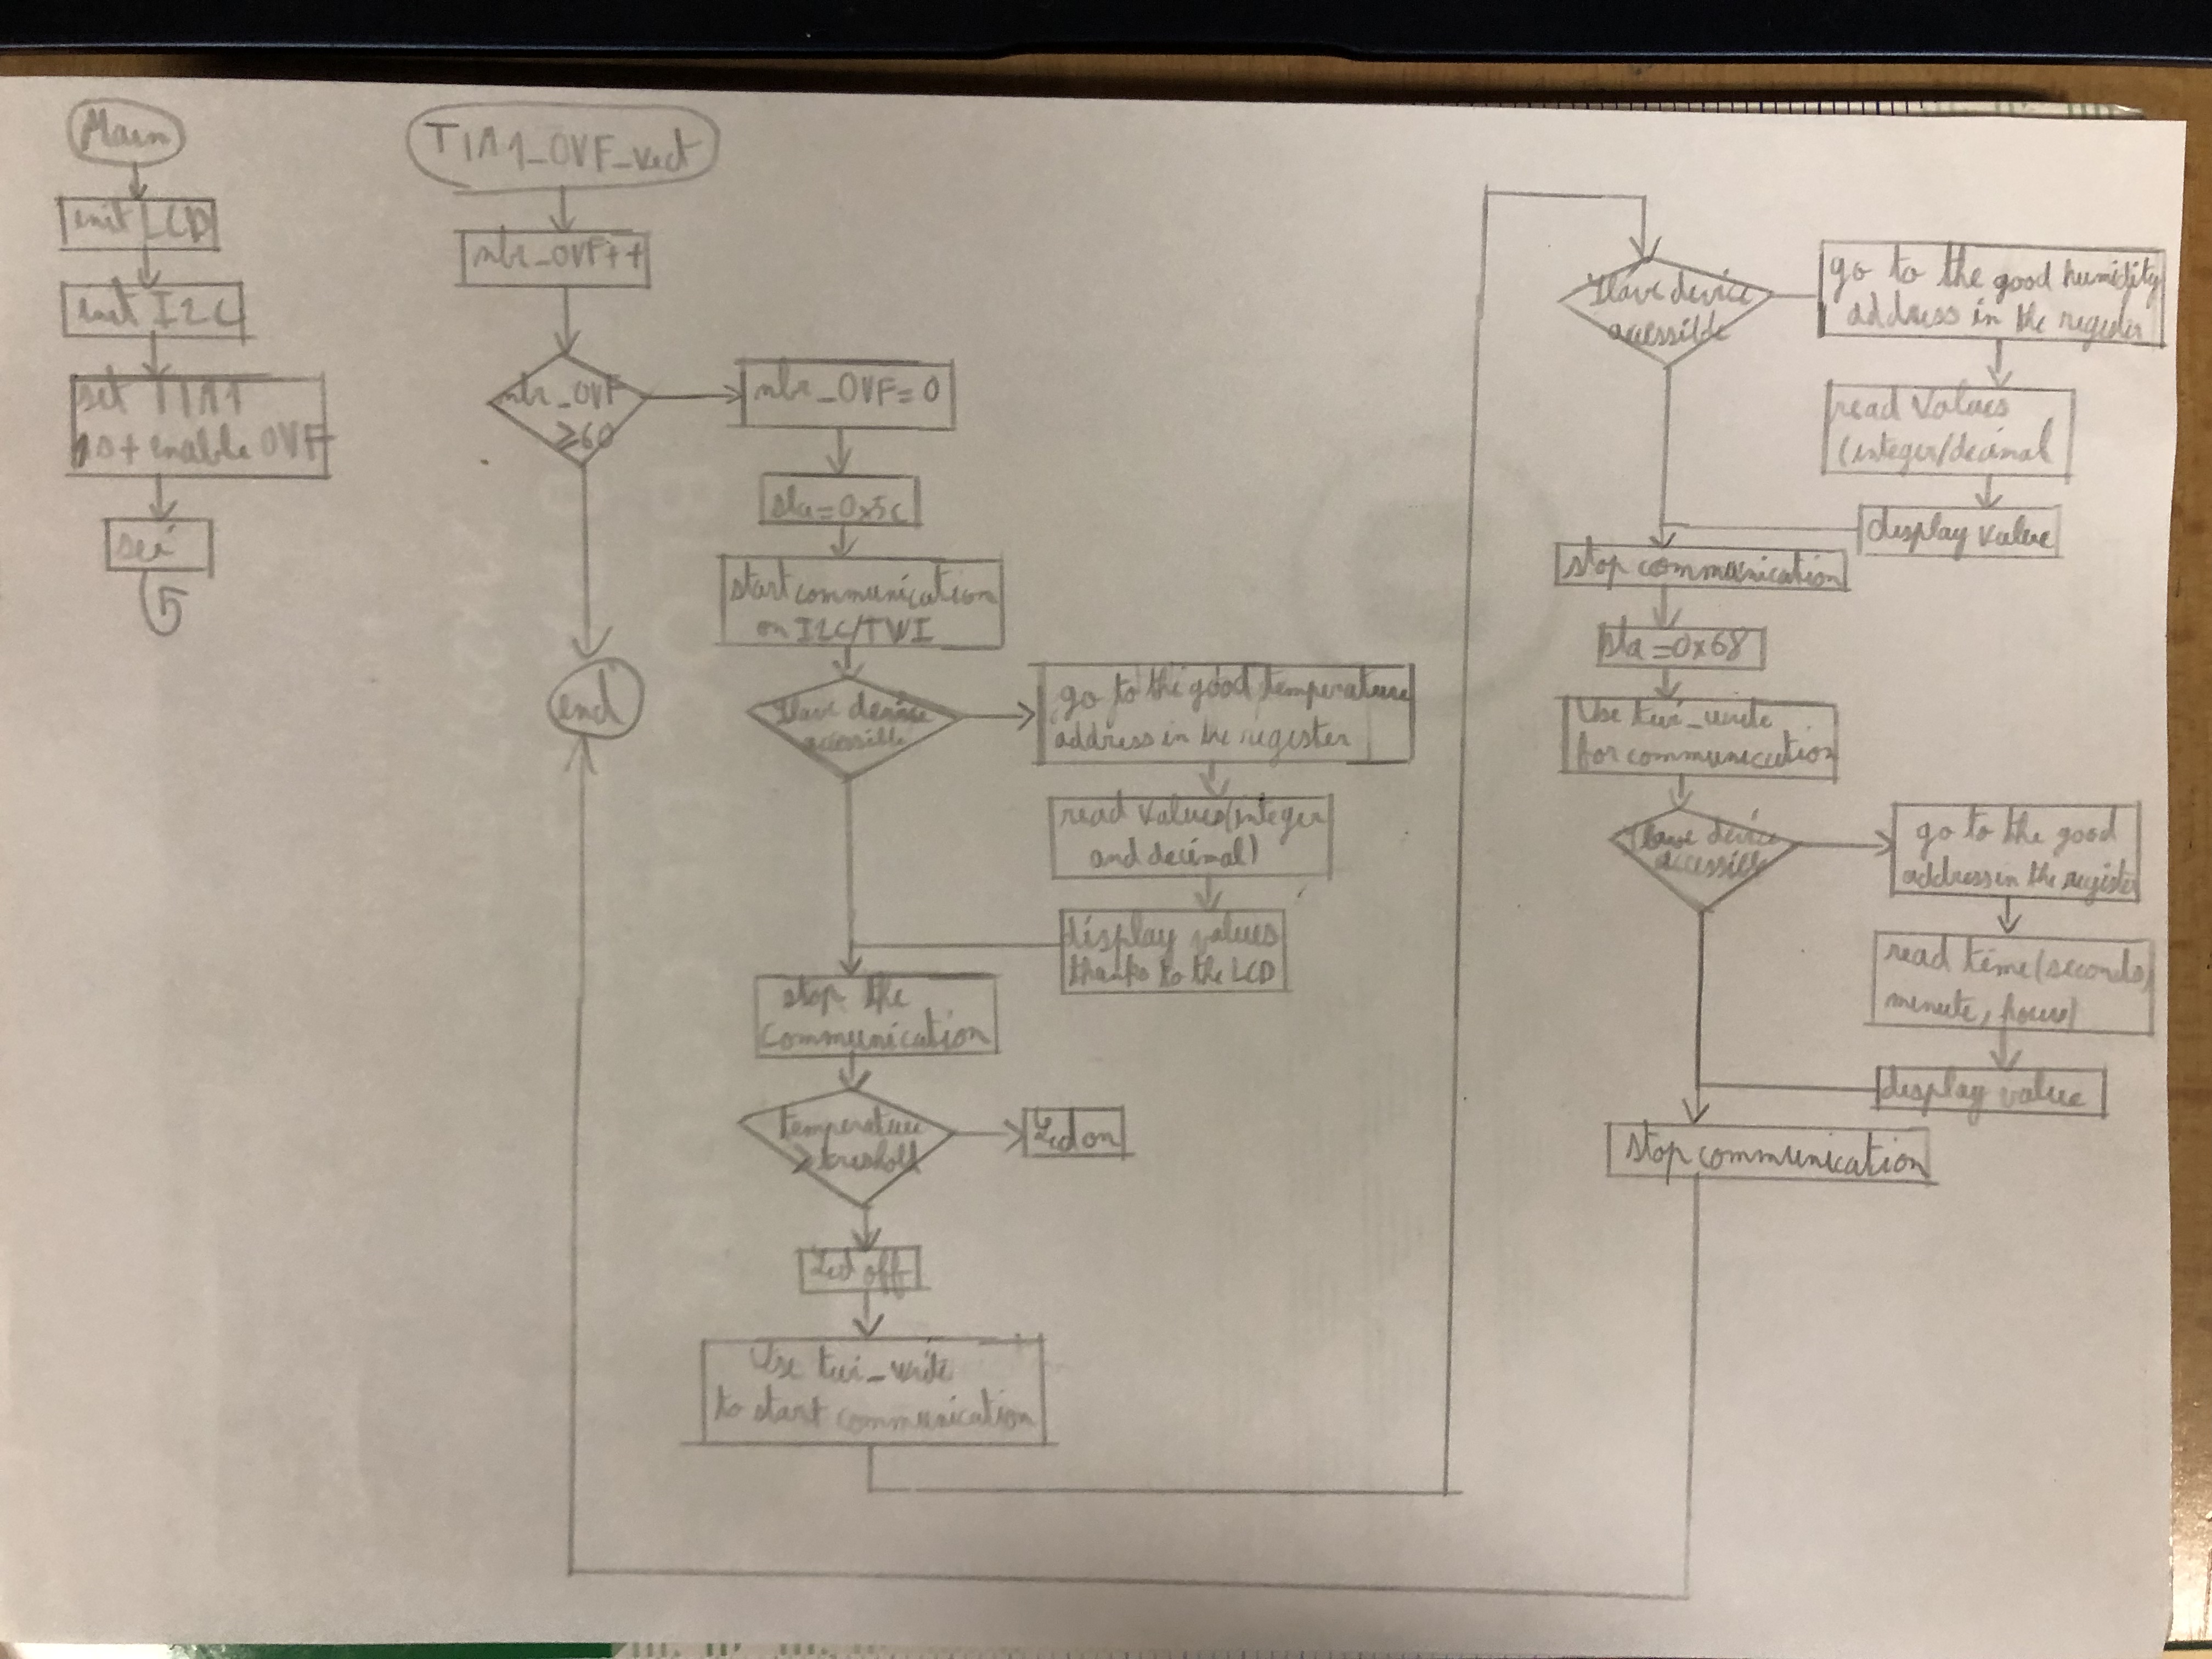 Main
init LCD
init I2C
set TIM1
1s + enable OVF
sei
TIM1_OVF_vect
nbr_OVF++
nbr_OVF
≥60
end
nbr_OVF=0
sla=0x5c
start communication
on I2C/TWI
Slave device
accessible
go to the good temperature
address in the register
read values (integer
and decimal)
display values
thanks to the LCD
stop the
communication
temperature
> treshold
Led on
Led off
Use twi_write
to start communication
Slave device
accessible
go to the good humidity
address in the register
read values
(integer/decimal
display value
stop communication
sla=0x68
Use twi_write
for communication
Slave device
accessible
go to the good
address in the register
read time (seconds,
minute, hour)
display value
stop communication